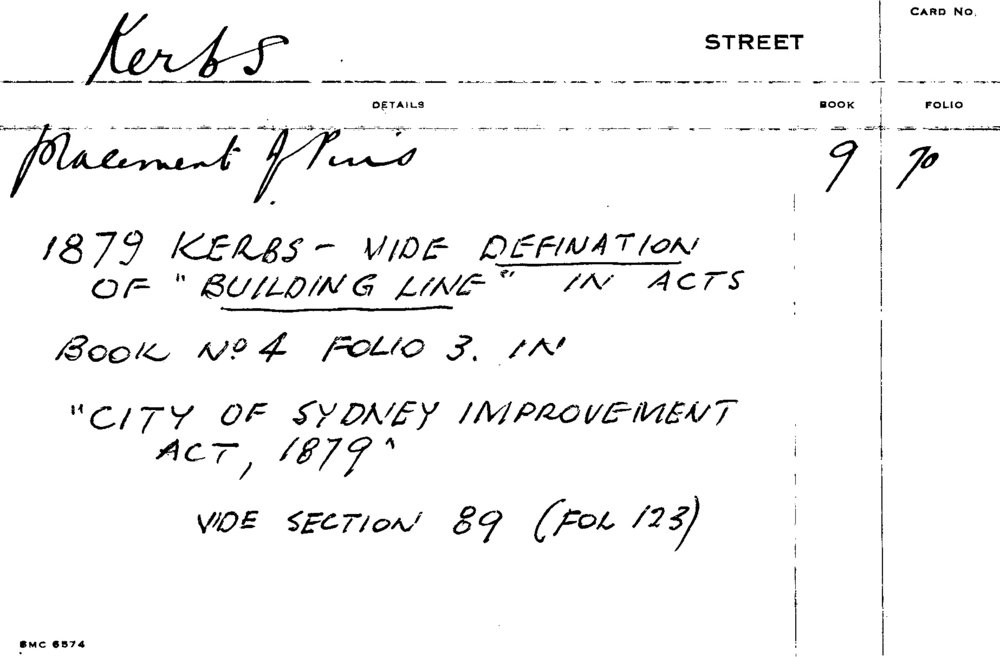 CARD NO.
Kerbs STREET
DETAILS BOOK FOLIO
Placement of Pins 9 70
1879 KERBS - VIDE DEFINATION
OF "BUILDING LINE" IN ACTS
BOOK Nº 4 FOLIO 3. IN
"CITY OF SYDNEY IMPROVEMENT
ACT, 1879"
VIDE SECTION 89 (FOL 123)
SMC 6574